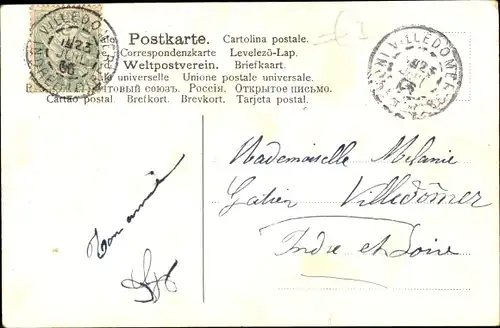 Postkarte. Cartolina postale.
Correspondenzkarte Levelező-Lap.
Weltpostverein. Briefkaart.
universelle Unione postale universale.
Россія. Открытое письмо.
Cartão postal. Brefkort. Brevkort. Tarjeta postal.
VILLEDOMER
VILLEDOMER
Mademoiselle Melanie
Gatien Villedômer
Indre et Loire
Ton amie